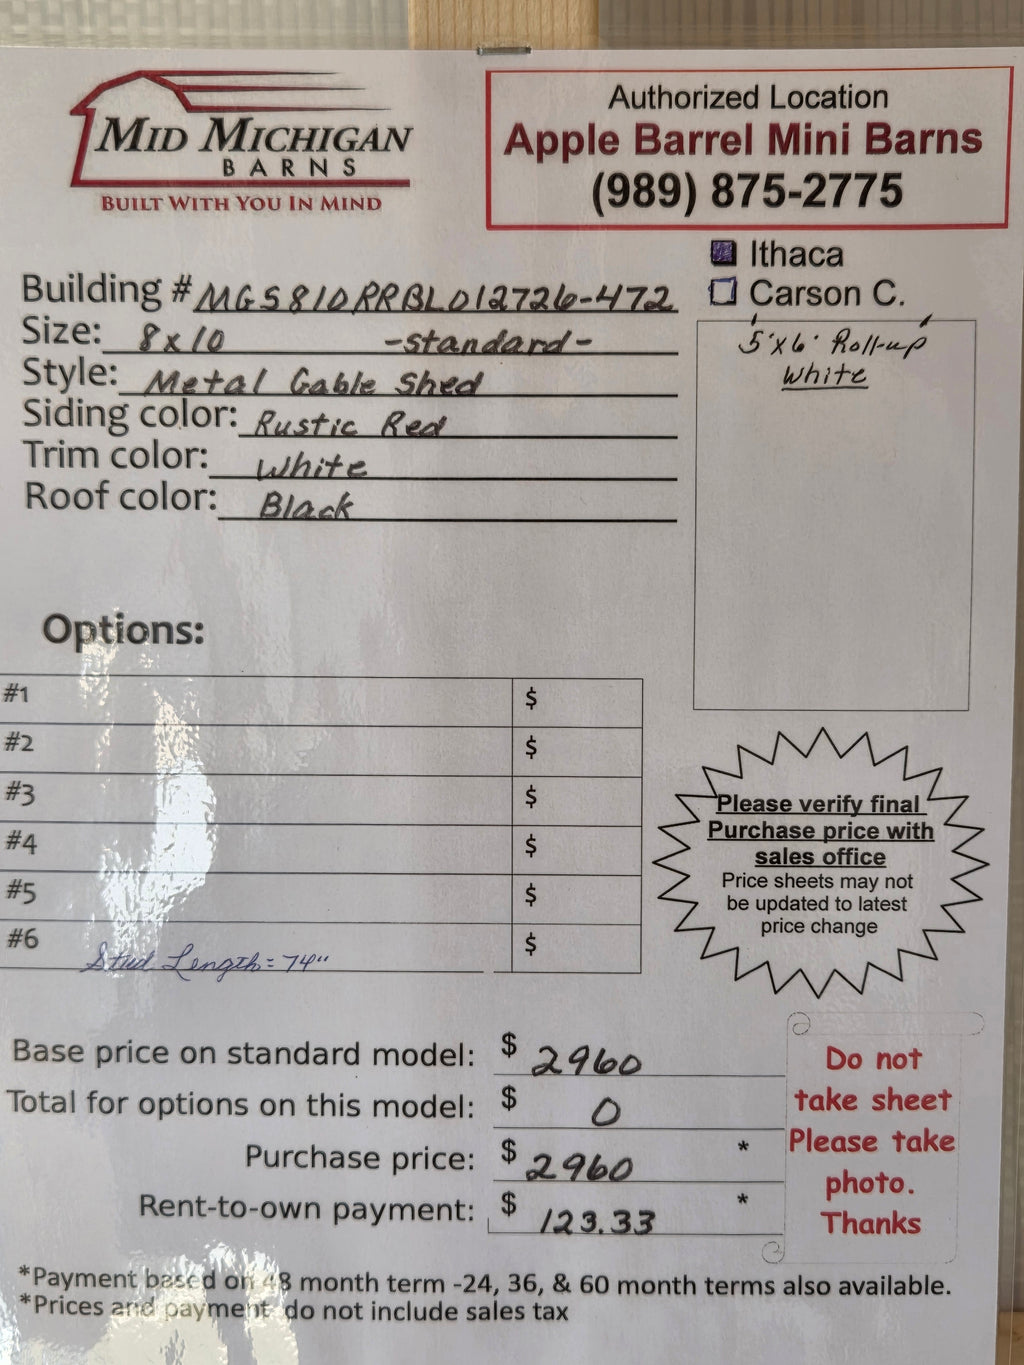 MID MICHIGAN
BARNS
BUILT WITH YOU IN MIND
Authorized Location
Apple Barrel Mini Barns
(989) 875-2775
Ithaca
Carson C.
Building # MGS810RRBL012726-472
Size: 8x10 -standard-
Style: Metal Gable Shed
Siding color: Rustic Red
Trim color: White
Roof color: Black
5'x6' Roll-up
White
Options:
#1 $
#2 $
#3 $
#4 $
#5 $
#6 Stud Length = 74" $
Please verify final
Purchase price with
sales office
Price sheets may not
be updated to latest
price change
Base price on standard model: $ 2960
Total for options on this model: $ 0
Purchase price: $ 2960 *
Rent-to-own payment: $ 123.33 *
Do not
take sheet
Please take
photo.
Thanks
*Payment based on 48 month term -24, 36, & 60 month terms also available.
*Prices and payment do not include sales tax